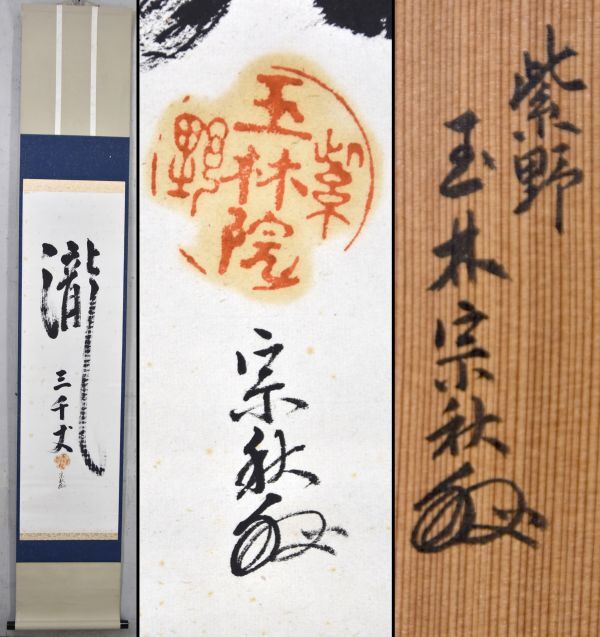 瀧
三千丈
紫野
玉林院
宗秋
紫野
玉林宗秋